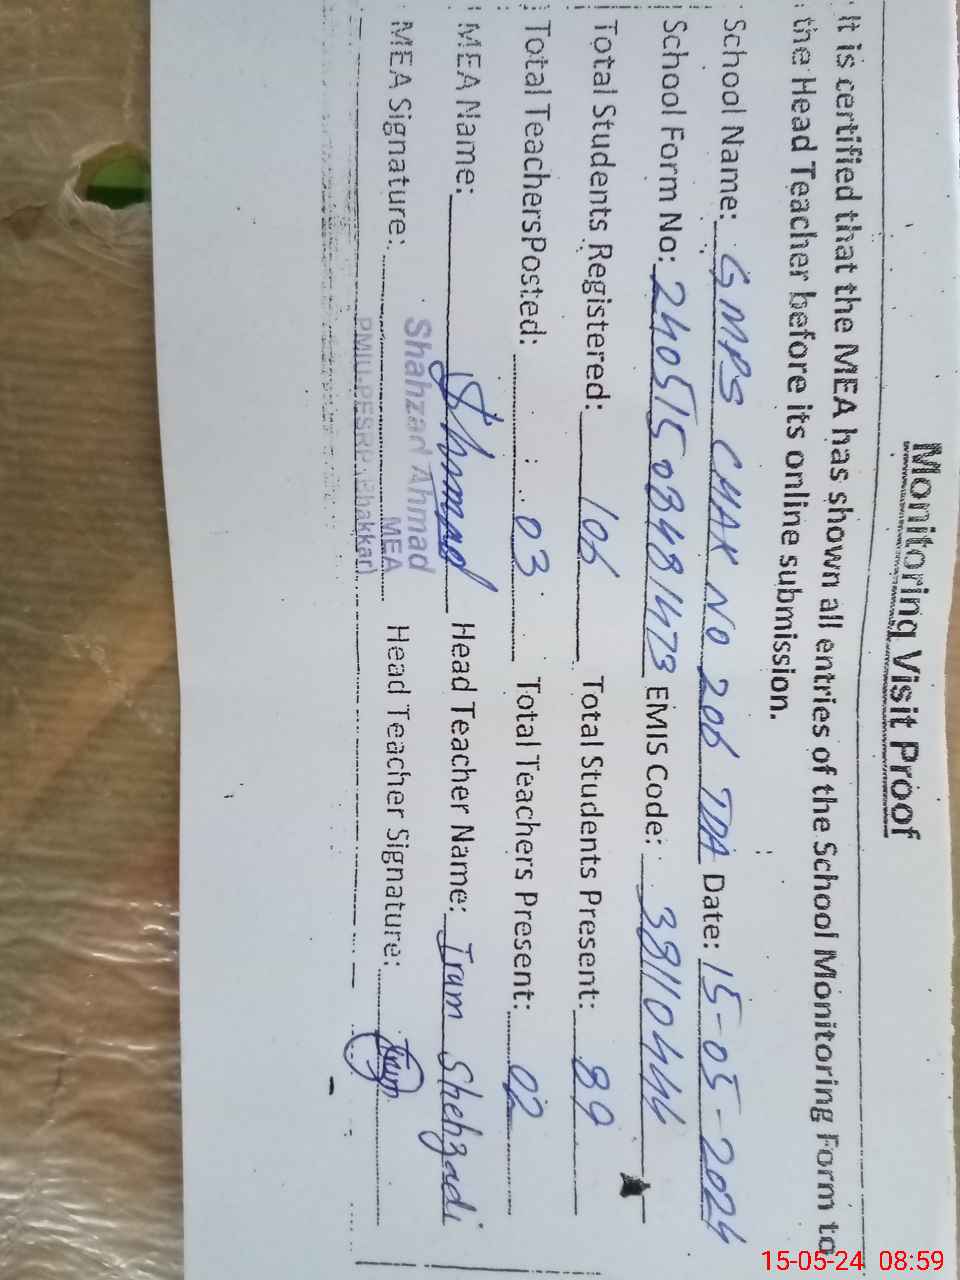 Monitoring Visit Proof
It is certified that the MEA has shown all entries of the School Monitoring Form to
the Head Teacher before its online submission.
School Name: GMPS CHAK NO 206 TDA Date: 15-05-2024
School Form No: 24051508481473 EMIS Code: 38110444
Total Students Registered: 106 Total Students Present: 89
Total TeachersPosted: 03 Total Teachers Present: 02
MEA Name: Shhzad Head Teacher Name: Iram Shehzadi
MEA Signature: Shahzad Ahmad Head Teacher Signature: Iram
MEA
PMIU-PESRP (Bhakkar)
15-05-24 08:59